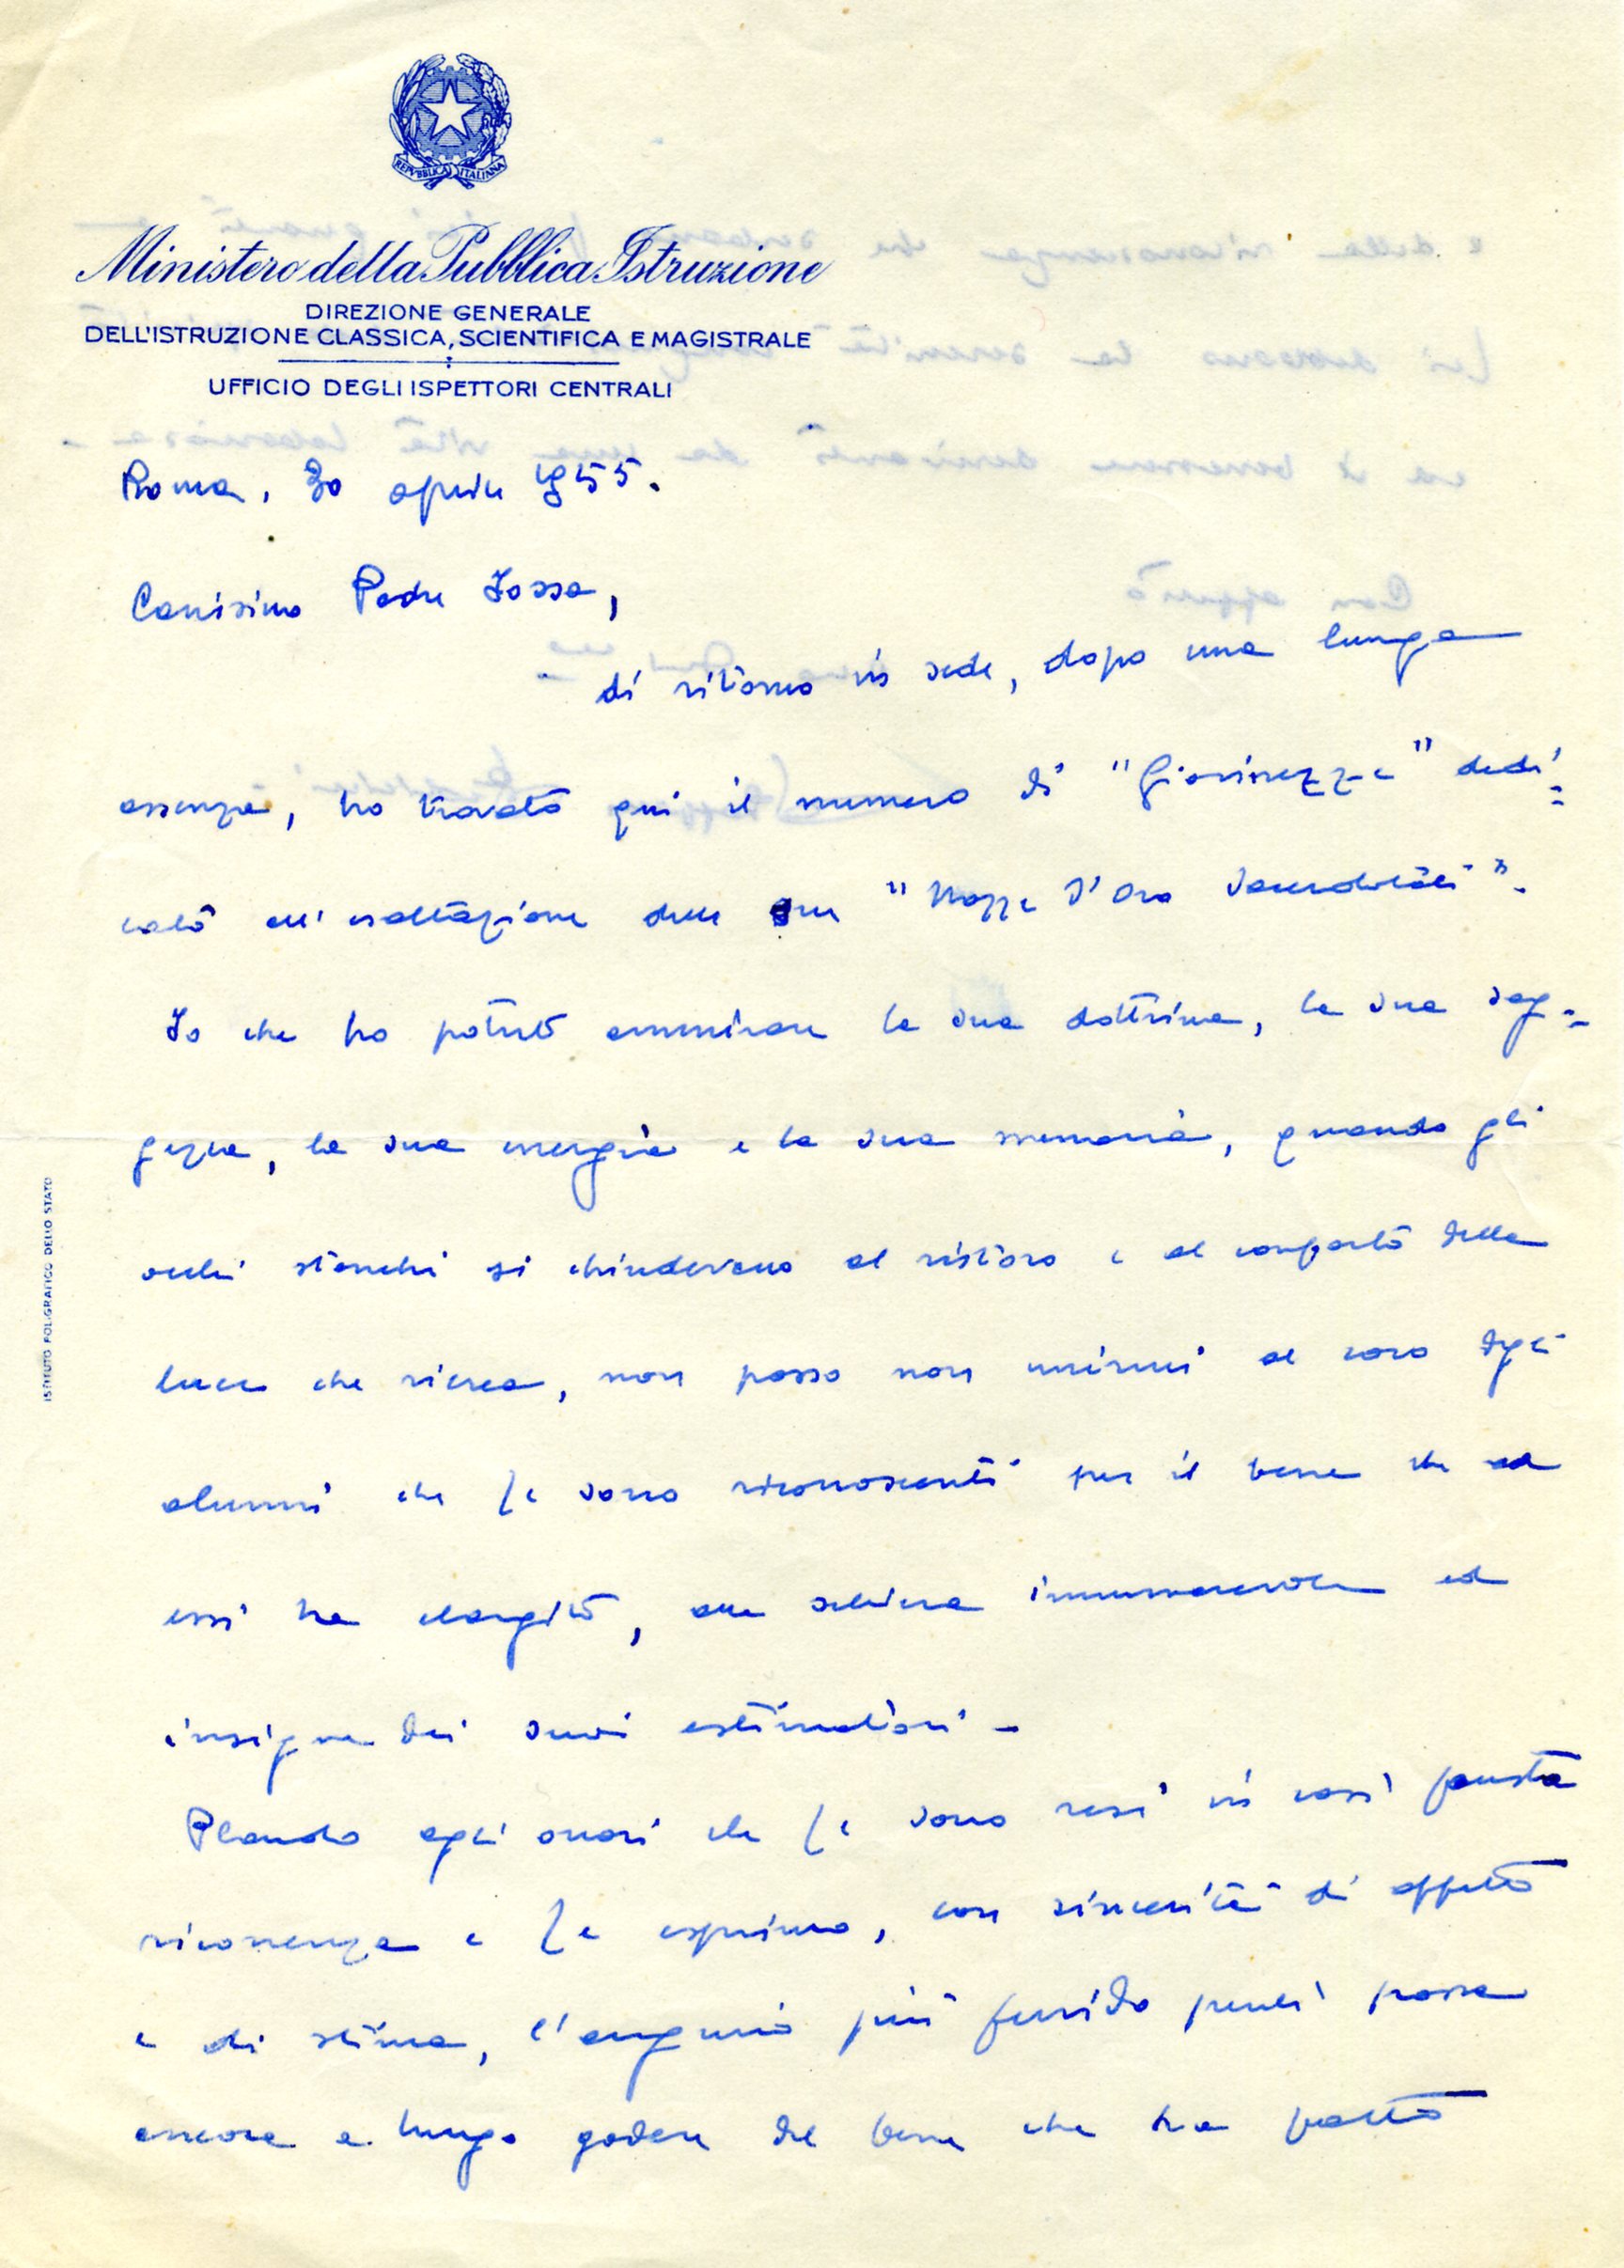 REPVBBLICA ITALIANA
Ministero della Pubblica Istruzione
DIREZIONE GENERALE
DELL'ISTRUZIONE CLASSICA, SCIENTIFICA E MAGISTRALE
UFFICIO DEGLI ISPETTORI CENTRALI
Roma, 30 aprile 1955.
Carissimo Padre Fossa,
di ritorno in sede, dopo una lunga
assenza, ho trovato qui il numero di "Giovinezza" dedi=
cato all'esaltazione delle sue "Nozze d'Oro Sacerdotali".
Io che ho potuto ammirare la sua dottrina, la sua sag=
gezza, la sua energia e la sua memoria, quando gli
occhi stanchi si chiudevano al ristoro e al conforto della
luce che ricrea, non posso non unirmi al coro degli
alunni che Le sono riconoscenti per il bene che ad
essi ha elargito, alla schiera innumerevole ed
insigne dei suoi estimatori -
Plaudo agli onori che Le sono resi in così fausta
ricorrenza e Le esprimo, con sincerità di affetto
e di stima, l'augurio più fervido perché possa
ancora a lungo godere del bene che ha fatto
ISTITUTO POLIGRAFICO DELLO STATO